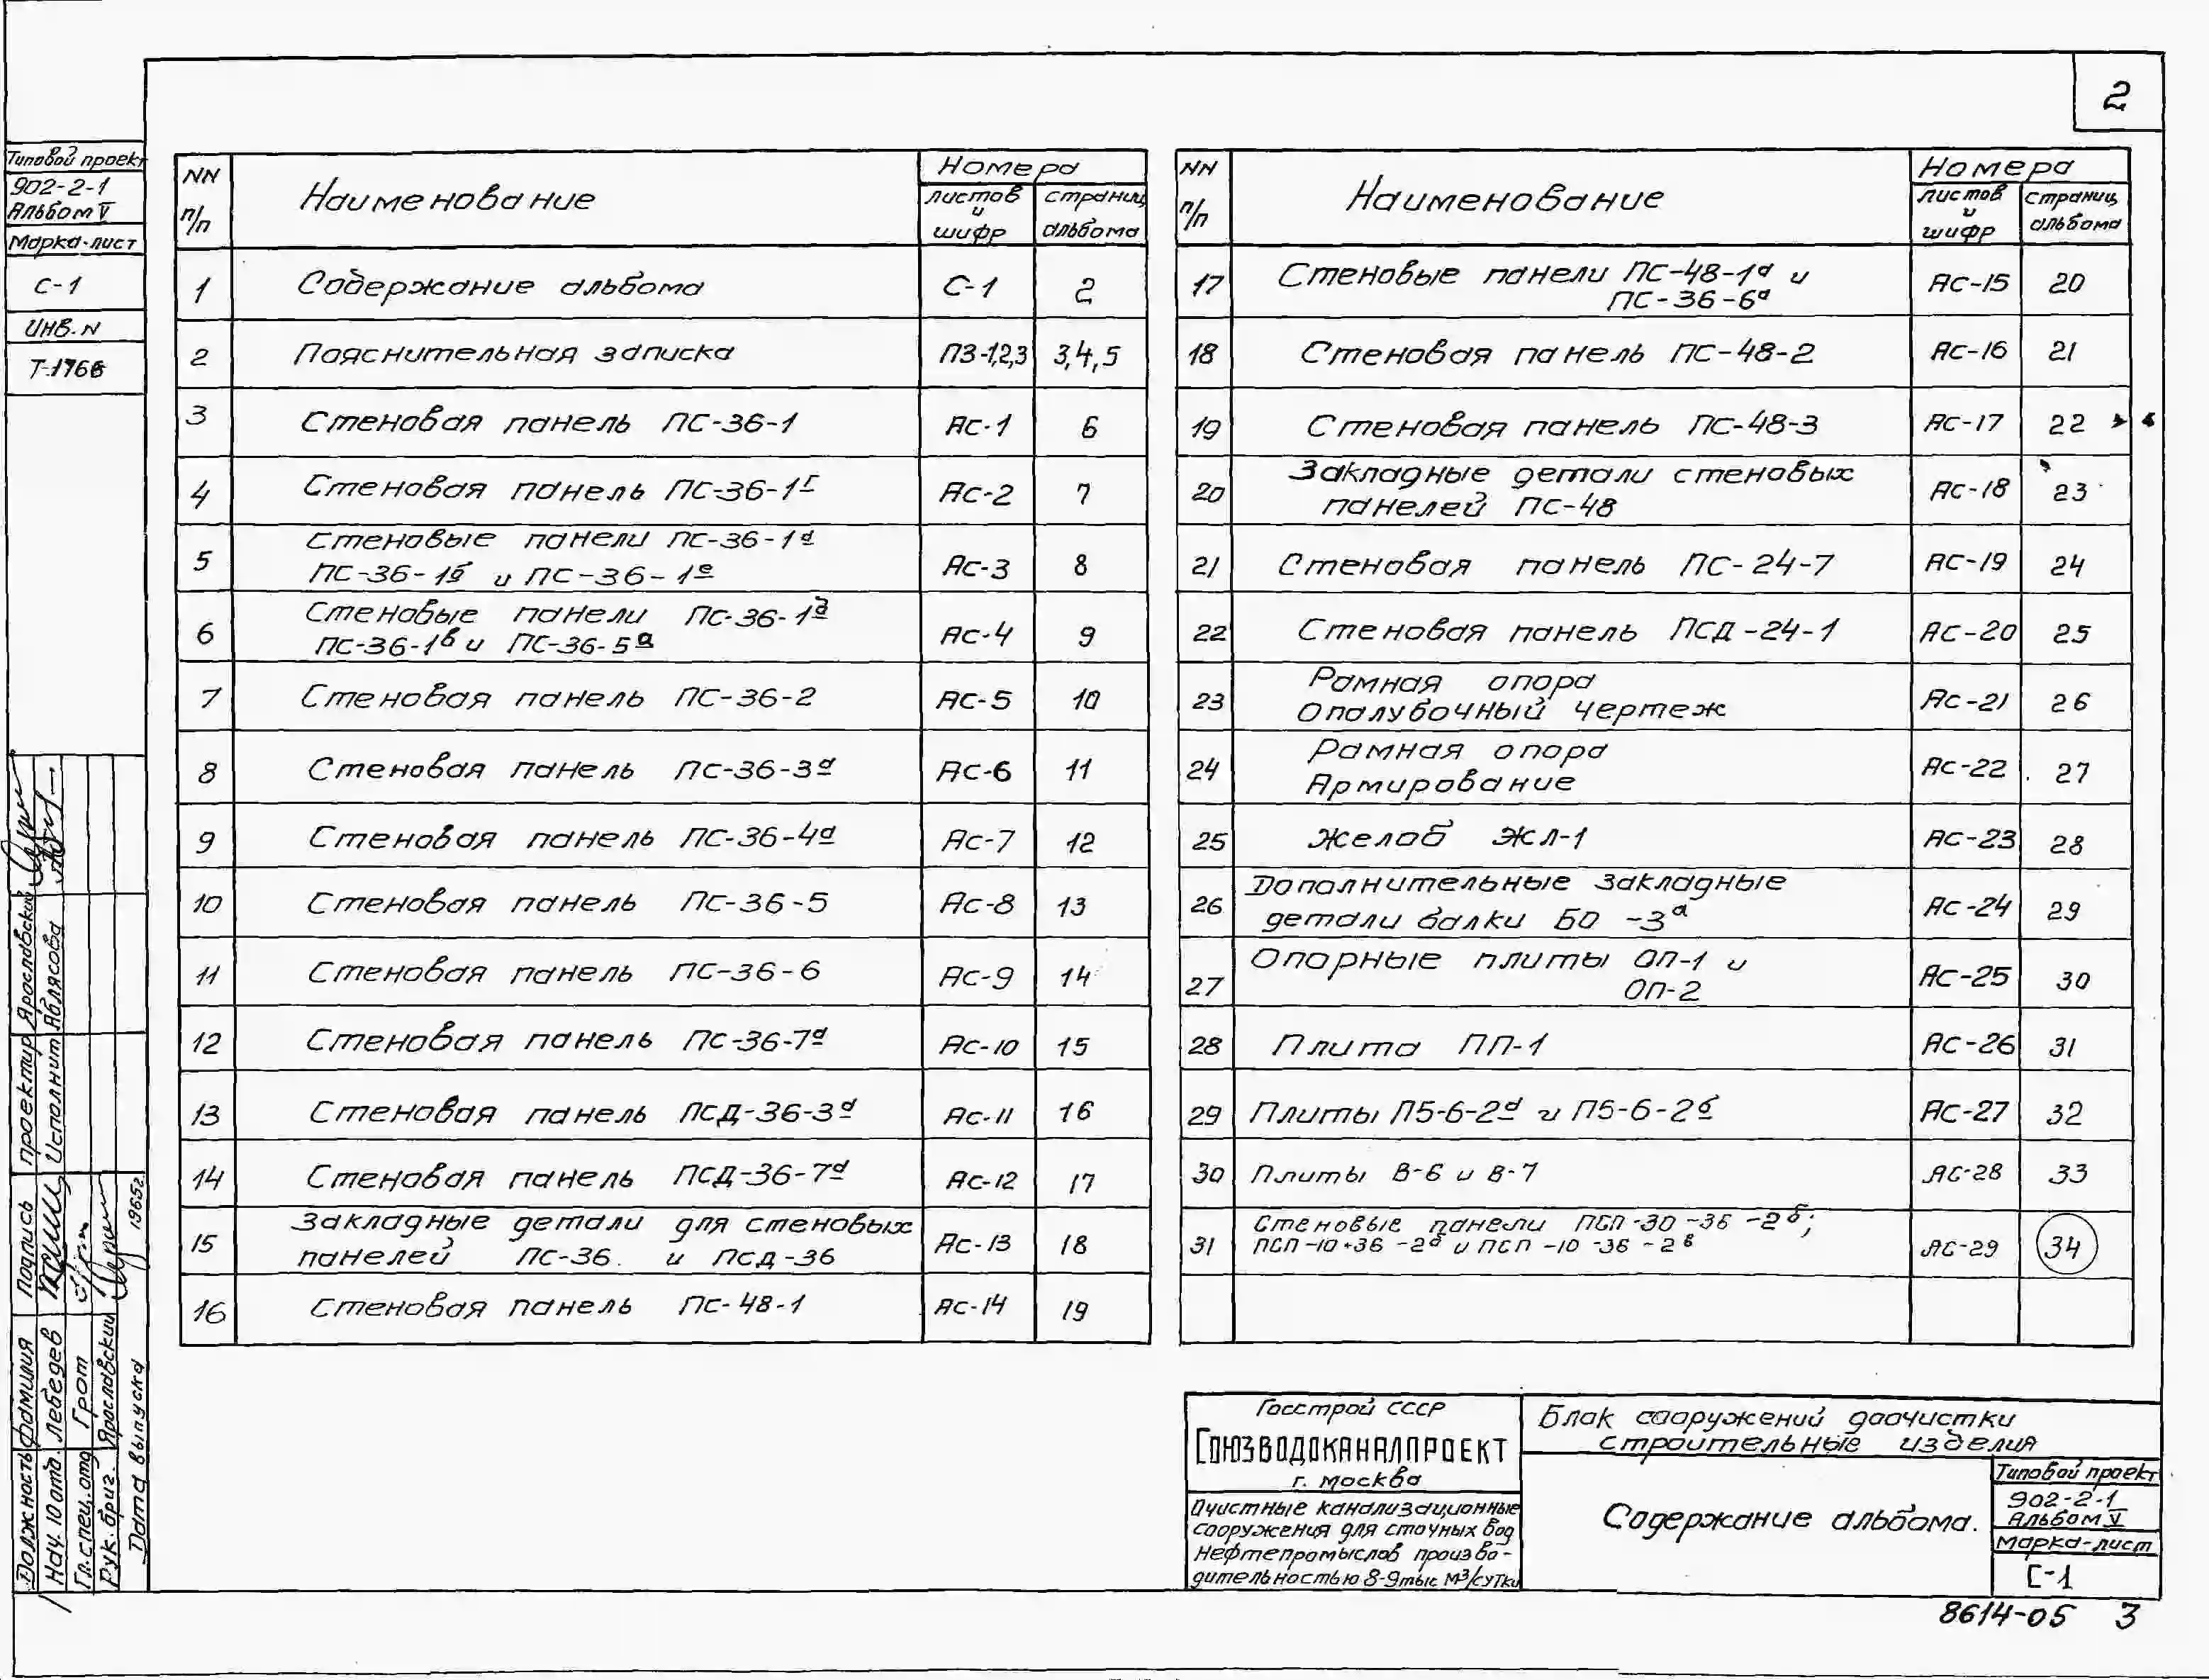 2
Типовой проект
902-2-1
Альбом V
Марка-лист
С-1
Инв. N
Т-1766
NN п/п
Наименование
Номера
листов и шифр
страниц альбома
1 Содержание альбома С-1 2
2 Пояснительная записка ПЗ-1,2,3 3,4,5
3 Стеновая панель ПС-36-1 АС-1 6
4 Стеновая панель ПС-36-1г АС-2 7
5 Стеновые панели ПС-36-1а
ПС-36-1б и ПС-36-1е АС-3 8
6 Стеновые панели ПС-36-1д
ПС-36-1в и ПС-36-5а АС-4 9
7 Стеновая панель ПС-36-2 АС-5 10
8 Стеновая панель ПС-36-3а АС-6 11
9 Стеновая панель ПС-36-4а АС-7 12
10 Стеновая панель ПС-36-5 АС-8 13
11 Стеновая панель ПС-36-6 АС-9 14
12 Стеновая панель ПС-36-7а АС-10 15
13 Стеновая панель ПСД-36-3а АС-11 16
14 Стеновая панель ПСД-36-7а АС-12 17
15 Закладные детали для стеновых
панелей ПС-36 и ПСД-36 АС-13 18
16 Стеновая панель ПС-48-1 АС-14 19
NN п/п
Наименование
Номера
листов и шифр
страниц альбома
17 Стеновые панели ПС-48-1а и
ПС-36-6а АС-15 20
18 Стеновая панель ПС-48-2 АС-16 21
19 Стеновая панель ПС-48-3 АС-17 22
20 Закладные детали стеновых
панелей ПС-48 АС-18 23
21 Стеновая панель ПС-24-7 АС-19 24
22 Стеновая панель ПСД-24-1 АС-20 25
23 Рамная опора
Опалубочный чертеж АС-21 26
24 Рамная опора
Армирование АС-22 27
25 Желоб ЖЛ-1 АС-23 28
26 Дополнительные закладные
детали балки БО-3а АС-24 29
27 Опорные плиты ОП-1 и
ОП-2 АС-25 30
28 Плита ПП-1 АС-26 31
29 Плиты П5-6-2а и П5-6-2б АС-27 32
30 Плиты В-6 и В-7 АС-28 33
31 Стеновые панели ПСП-30-36-2б;
ПСП-10-36-2а и ПСП-10-36-2в АС-29 34
проектир Ярославский
Исполнит Аблясова
Должность Фамилия Подпись
Нач. 10 отд. Лебедев
Гл. спец. отд Грот
Рук. бриг. Ярославский
Дата выпуска 1965г.
Госстрой СССР
СОЮЗВОДОКАНАЛПРОЕКТ
г. Москва
Очистные канализационные
сооружения для сточных вод
нефтепромыслов произво-
дительностью 8-9тыс м³/сутки
Блок сооружений доочистки
строительные изделия
Содержание альбома.
Типовой проект
902-2-1
Альбом V
Марка-лист
С-1
8614-05 3